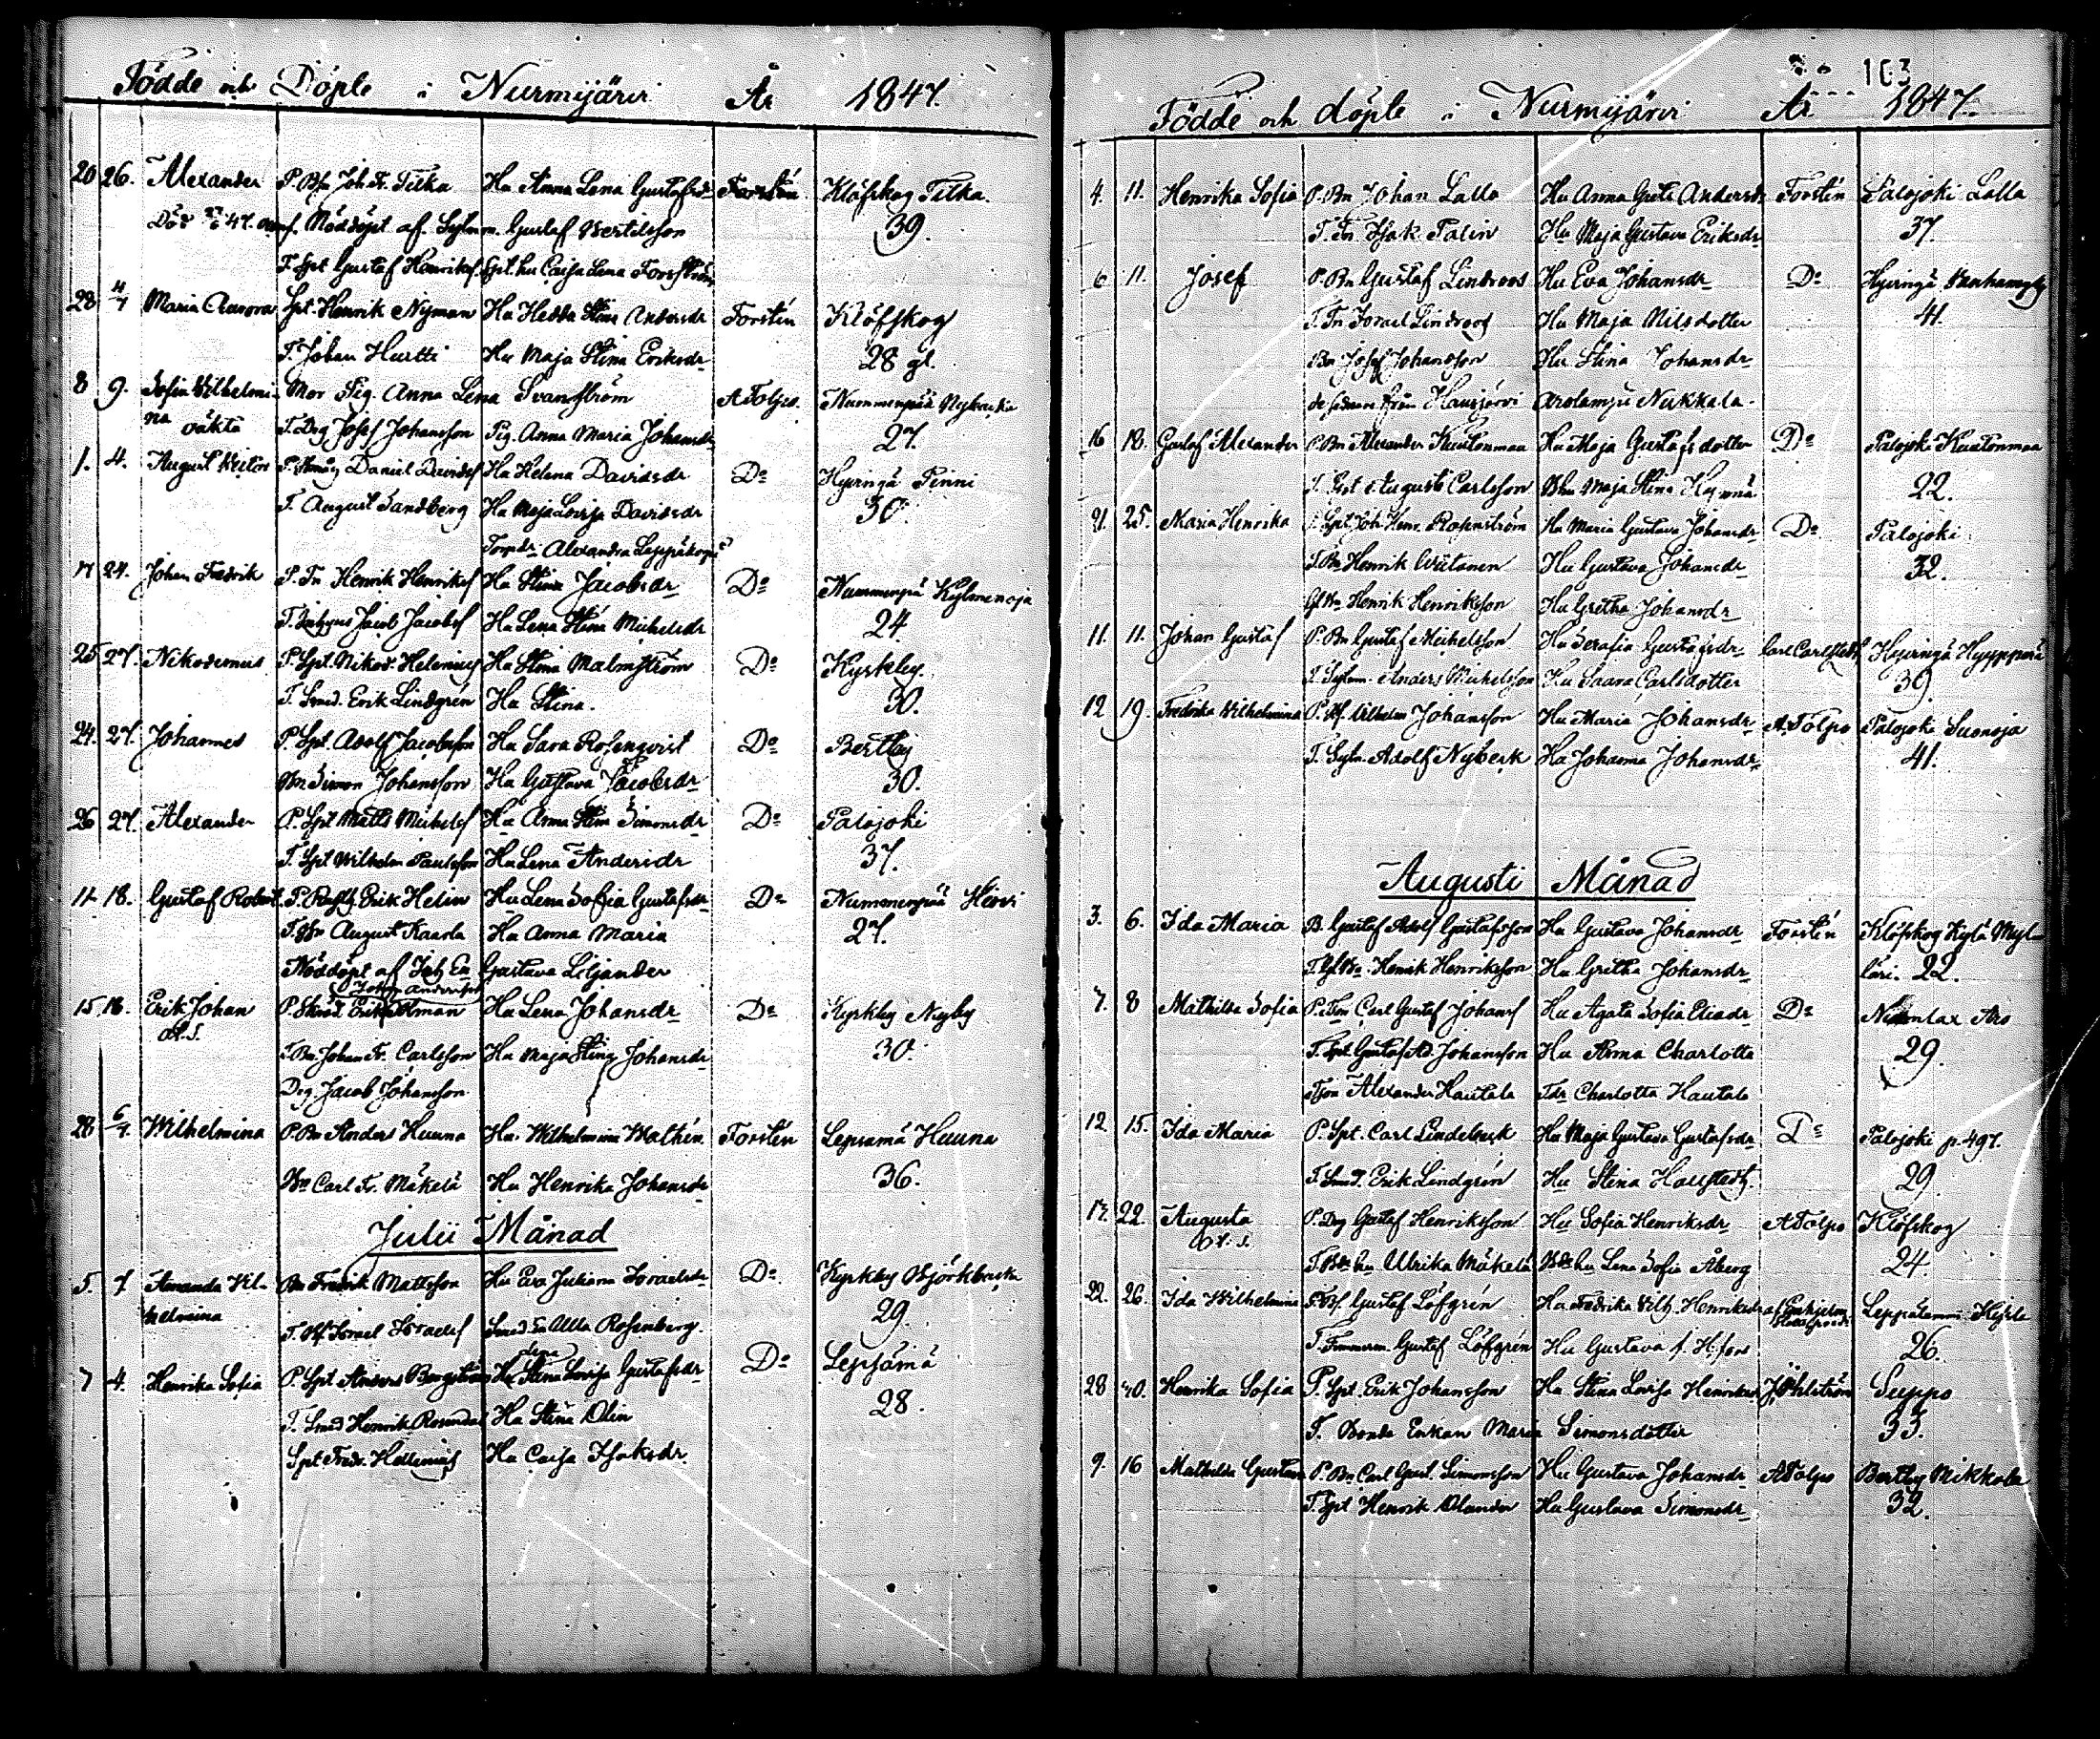 Födde och Döpte i Nurmijärvi År 1847.
20 26. Alexander P. Bn Joh. Fr. Tilka Hu Anna Lena Gustafsdr Forstén Klöfskog Tilka.
Nöddöpt af Sytm. Gustaf Bertilsson 39.
T. Spt Gustaf Henriksf. Spt. hu Caisa Lena Forsström
28 4/7 Maria Aurora Spt. Henrik Nyman Hu Hedda Stina Andersdr Forstén Klöfskog
T. Johan Hurtti Hu Maja Stina Eriksdr 28 gl.
8 9. Sofia Wilhelmi- Mor Pig. Anna Lena Svanström A Tolpo. Nummenpää
na oäkta T. Drg Josef Johansson Pig. Anna Maria Johansdr 27.
1. 4. August Victor Daniel Davidsf Hu Helena Davidsdr Do Hyvingä Finni
T. August Sandberg Hu Maja Lovisa Davidsdr 30.
Alexandra
17 24. Johan Fredrik P. Tn Henrik Henriksf Hu Stina Jacobsdr Do Nummenpä Kylmenoja
T. Jacob Jacobsf Hu Lena Stina Michelsdr 24
25 27. Nikodemus P. Spt. Nikod. Helenius Hu Stina Malmström Do Kyrkby.
T. Smed. Erik Lindgrén Hu Stina. 30.
24. 27. Johannes P. Spt. Adolf Jacobsson Hu Sara Rosenqvist Do Bertby
Bn Simon Johansson Hu Gustava Jacobsdr 30.
26 27. Alexander P. Spt Matts Michelsf Hu Anna Stina Simonsdr Do Palojoki
T. Spt Wilhelm Paulsson Hu Lena Andersdr 37.
11 18. Gustaf Robert P. Erik Helin Hu Lena Sofia Gustafsdr Do Nummenpää Hirvi
T. Bn August Kaarla Hu Anna Maria 27.
Nöddöpt af Gustava Liljander
15 18. Erik Johan P. Hu Lena Johansdr Do Kyrkby Nyby
d. s. T. Bn Johan Fr. Carlsson Hu Maja Stina Johansdr 30.
Drg. Jacob Johansson
28 6/7. Wilhelmina P. Bn Anders Huuna Hu Wilhelmina Mathén Forstén Lepsämä Huuna
Bn Carl Fr. Mäkelä Hu Henrika Johansdr 36.
Julii Månad
5. 7 Amanda Vil- Bn Fredrik Mattsson Hu Eva Juliana Israelsdr Do Kyrkby Björkbacka
helmina T. Israel Israelsf Rosenberg. 29.
7 4. Henrika Sofia P. Spt Anders Bergström Hu Stina Lovisa Gustafsdr Do Lepsämä
T. Smed Henrik Rosendal Hu Stina Olin 28.
Spt. Fredr. Hellenius Hu Caisa Isaksdr.
103
Födde och döpte i Nurmijärvi År 1847.
4. 11. Henrika Sofia P. Bn Johan Lalla Hu Anna Greta Andersdr Forstén Palojoki Lalla
T. Tn. Isak Talin Hu Maja Gustava Eriksdr 37.
6 11. Josef P. Bn Gustaf Lindroos Hu Eva Johansdr Do Hyvingä
T. Tn Israel Lindroos Hu Maja Nilsdotter 41.
Bn Josef Johansson Hu Stina Johansdr
de sednare från Hausjärvi Arolampi Nukkala.
16 18. Gustaf Alexander P. Bn Alexander Kuutonmaa Hu Maja Gustafsdotter Do Palojoki Kuutonmaa
T. Spt August Carlsson Maja Stina 22.
21. 25. Maria Henrika Spt. Joh. Henr. Rosenström Hu Maria Gustava Johansdr Do Palojoki
T. Bn Henrik Wiitanen Hu Gustava Johansdr 32.
Henrik Henriksson Hu Gretha Johansdr
11. 11. Johan Gustaf P. Bn Gustaf Michelsson Hu Serafia Gustafsdr Carl Carlstedt Hyvingä Hyyppärä
T. Sytm. Anders Michelsson Hu Saara Carlsdotter 39.
12 19. Fredrika Wilhelmina P. Wilhelm Johansson Hu Maria Johansdr A. Tolpo Palojoki Suonoja
T. Sytm. Adolf Nyberk Hu Johanna Johansdr 41.
Augusti Månad
3. 6. Ida Maria B. Gustaf Adolf Gustafsson Hu Gustava Johansdr Forstén Klöfskog Kylä Myl-
T. Henrik Henriksson Hu Gretha Johansdr läri. 22.
7. 8 Mathilda Sofia P. Tn Carl Gustaf Johansf Hu Agata Sofia Eliadr Do
T. Spt Gustaf Ad. Johansson Hu Anna Charlotta 29.
Alexander Hautala Tdr Charlotta Hautala
12 15. Ida Maria P. Spt. Carl Lindeberk Hu Maja Gustava Gustafsdr Do Palojoki p. 497.
T. Smed. Erik Lindgrén Hu Stina Hallstedt. 29.
17. 22. Augusta P. Drg Gustaf Henriksson Hu Sofia Henriksdr A Tolpo Klöfskog
T. hu Ulrika Mäkelä hu Lena Sofia Åberg 24.
22. 26. Ida Wilhelmina Gustaf Löfgrén Hu Fredrika Wilh. Henriksdr Leppälammi
T. Timmerm. Gustaf Löfgrén Hu Gustava f. H:fors 26.
28 30. Henrika Sofia P. Spt. Erik Johansson Hu Stina Lovisa Henriksdr Suppo
T. Bonde Enkan Maria Simonsdotter 33.
9. 16 Mathilda Gustava P. Bn Carl Gust. Simonsson Hu Gustava Johansdr A Tolpo Bertby Mikkola
T. Spt. Henrik Olander Hu Gustava Simonsdr 32.